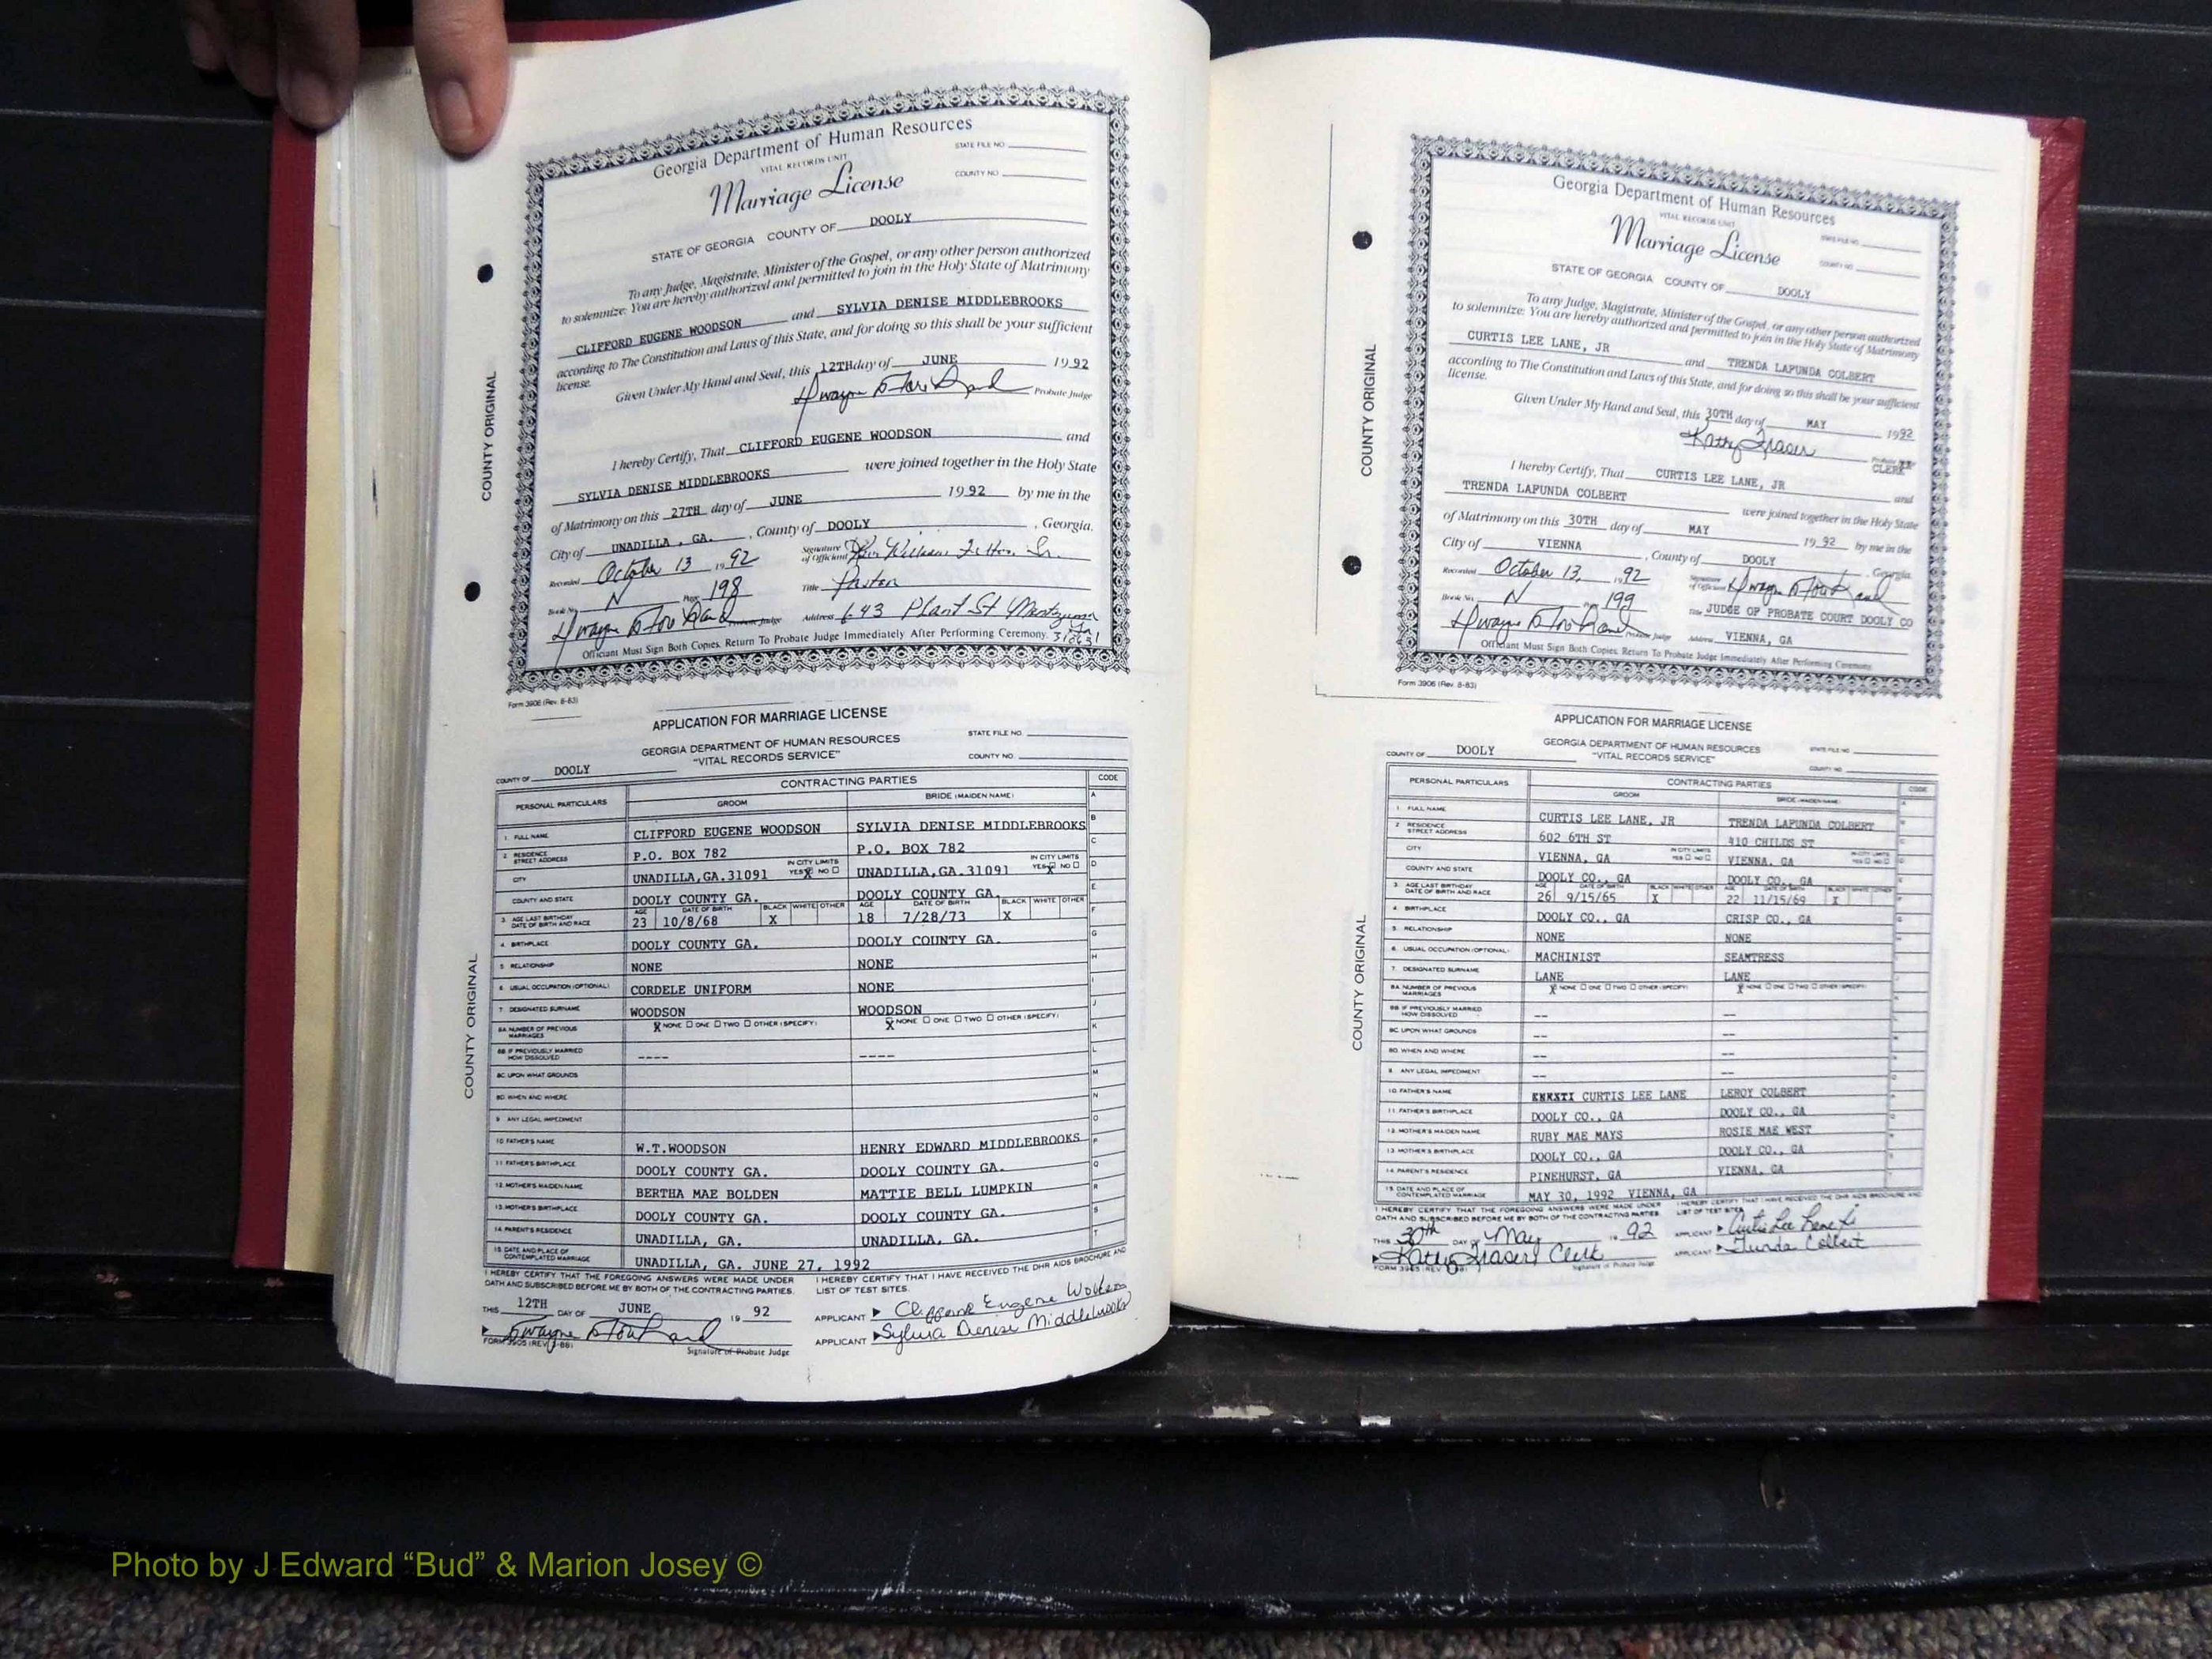 Georgia Department of Human Resources
VITAL RECORDS UNIT
STATE FILE NO
Marriage License
COUNTY NO
STATE OF GEORGIA COUNTY OF DOOLY
To any Judge, Magistrate, Minister of the Gospel, or any other person authorized
to solemnize: You are hereby authorized and permitted to join in the Holy State of Matrimony
CLIFFORD EUGENE WOODSON and SYLVIA DENISE MIDDLEBROOKS
according to The Constitution and Laws of this State, and for doing so this shall be your sufficient
license.
Given Under My Hand and Seal, this 12TH day of JUNE 1992
Probate Judge
I hereby Certify, That CLIFFORD EUGENE WOODSON and
SYLVIA DENISE MIDDLEBROOKS were joined together in the Holy State
of Matrimony on this 27TH day of JUNE 1992 by me in the
City of UNADILLA , GA. , County of DOOLY , Georgia.
Recorded October 13 1992 Signature of Officiant
Book No. N Page 198 Title Pastor
Probate Judge Address 643 Plant St
Officiant Must Sign Both Copies. Return To Probate Judge Immediately After Performing Ceremony.
Form 3906 (Rev. 8-83)
COUNTY ORIGINAL
APPLICATION FOR MARRIAGE LICENSE
GEORGIA DEPARTMENT OF HUMAN RESOURCES
STATE FILE NO.
"VITAL RECORDS SERVICE"
COUNTY NO.
COUNTY OF DOOLY
PERSONAL PARTICULARS CONTRACTING PARTIES CODE
GROOM BRIDE (MAIDEN NAME)
1. FULL NAME CLIFFORD EUGENE WOODSON SYLVIA DENISE MIDDLEBROOKS
2. RESIDENCE STREET ADDRESS P.O. BOX 782 P.O. BOX 782
CITY UNADILLA,GA.31091 IN CITY LIMITS YES X NO UNADILLA,GA.31091 IN CITY LIMITS YES X NO
COUNTY AND STATE DOOLY COUNTY GA. DOOLY COUNTY GA.
3. AGE LAST BIRTHDAY DATE OF BIRTH AND RACE AGE 23 DATE OF BIRTH 10/8/68 BLACK X WHITE OTHER AGE 18 DATE OF BIRTH 7/28/73 BLACK X WHITE OTHER
4. BIRTHPLACE DOOLY COUNTY GA. DOOLY COUNTY GA.
5. RELATIONSHIP NONE NONE
6. USUAL OCCUPATION (OPTIONAL) CORDELE UNIFORM NONE
7. DESIGNATED SURNAME WOODSON WOODSON
8A NUMBER OF PREVIOUS MARRIAGES X NONE ONE TWO OTHER (SPECIFY) X NONE ONE TWO OTHER (SPECIFY)
8B IF PREVIOUSLY MARRIED HOW DISSOLVED ---- ----
8C UPON WHAT GROUNDS
8D WHEN AND WHERE
9. ANY LEGAL IMPEDIMENT
10 FATHER'S NAME W.T.WOODSON HENRY EDWARD MIDDLEBROOKS
11 FATHER'S BIRTHPLACE DOOLY COUNTY GA. DOOLY COUNTY GA.
12. MOTHER'S MAIDEN NAME BERTHA MAE BOLDEN MATTIE BELL LUMPKIN
13. MOTHER'S BIRTHPLACE DOOLY COUNTY GA. DOOLY COUNTY GA.
14. PARENT'S RESIDENCE UNADILLA, GA. UNADILLA, GA.
15. DATE AND PLACE OF CONTEMPLATED MARRIAGE UNADILLA, GA. JUNE 27, 1992
I HEREBY CERTIFY THAT THE FOREGOING ANSWERS WERE MADE UNDER OATH AND SUBSCRIBED BEFORE ME BY BOTH OF THE CONTRACTING PARTIES.
I HEREBY CERTIFY THAT I HAVE RECEIVED THE DHR AIDS BROCHURE AND LIST OF TEST SITES.
THIS 12TH DAY OF JUNE 19 92
APPLICANT Clifford Eugene
APPLICANT Sylvia Denise Middlebrooks
Signature of Probate Judge
COUNTY ORIGINAL
Georgia Department of Human Resources
VITAL RECORDS UNIT
STATE FILE NO
Marriage License
COUNTY NO
STATE OF GEORGIA COUNTY OF DOOLY
To any Judge, Magistrate, Minister of the Gospel, or any other person authorized
to solemnize: You are hereby authorized and permitted to join in the Holy State of Matrimony
CURTIS LEE LANE, JR and TRENDA LAFUNDA COLBERT
according to The Constitution and Laws of this State, and for doing so this shall be your sufficient
license.
Given Under My Hand and Seal, this 30TH day of MAY 1992
Kathy Fraser
CLERK
I hereby Certify, That CURTIS LEE LANE, JR and
TRENDA LAFUNDA COLBERT were joined together in the Holy State
of Matrimony on this 30TH day of MAY 1992 by me in the
City of VIENNA , County of DOOLY , Georgia.
Recorded October 13, 1992 Signature of Officiant
Book No. N Page 199 Title JUDGE OF PROBATE COURT DOOLY CO
Probate Judge Address VIENNA, GA
Officiant Must Sign Both Copies. Return To Probate Judge Immediately After Performing Ceremony.
Form 3906 (Rev. 8-83)
COUNTY ORIGINAL
APPLICATION FOR MARRIAGE LICENSE
GEORGIA DEPARTMENT OF HUMAN RESOURCES
STATE FILE NO
"VITAL RECORDS SERVICE"
COUNTY NO
COUNTY OF DOOLY
PERSONAL PARTICULARS CONTRACTING PARTIES CODE
GROOM BRIDE (MAIDEN NAME)
1. FULL NAME CURTIS LEE LANE, JR TRENDA LAFUNDA COLBERT
2. RESIDENCE STREET ADDRESS 602 6TH ST 410 CHILDS ST
CITY VIENNA, GA IN CITY LIMITS YES NO VIENNA, GA IN CITY LIMITS YES NO
COUNTY AND STATE DOOLY CO., GA DOOLY CO., GA
3. AGE LAST BIRTHDAY DATE OF BIRTH AND RACE AGE 26 DATE OF BIRTH 9/15/65 BLACK X WHITE OTHER AGE 22 DATE OF BIRTH 11/15/69 BLACK X WHITE OTHER
4. BIRTHPLACE DOOLY CO., GA CRISP CO., GA
5. RELATIONSHIP NONE NONE
6. USUAL OCCUPATION (OPTIONAL) MACHINIST SEAMTRESS
7. DESIGNATED SURNAME LANE LANE
8A NUMBER OF PREVIOUS MARRIAGES X NONE ONE TWO OTHER (SPECIFY) X NONE ONE TWO OTHER (SPECIFY)
8B IF PREVIOUSLY MARRIED HOW DISSOLVED -- --
8C UPON WHAT GROUNDS -- --
8D. WHEN AND WHERE -- --
9. ANY LEGAL IMPEDIMENT -- --
10. FATHER'S NAME CURTIS LEE LANE LEROY COLBERT
11. FATHER'S BIRTHPLACE DOOLY CO., GA DOOLY CO., GA
12. MOTHER'S MAIDEN NAME RUBY MAE MAYS ROSIE MAE WEST
13. MOTHER'S BIRTHPLACE DOOLY CO., GA DOOLY CO., GA
14. PARENT'S RESIDENCE PINEHURST, GA VIENNA, GA
15. DATE AND PLACE OF CONTEMPLATED MARRIAGE MAY 30, 1992 VIENNA, GA
I HEREBY CERTIFY THAT THE FOREGOING ANSWERS WERE MADE UNDER OATH AND SUBSCRIBED BEFORE ME BY BOTH OF THE CONTRACTING PARTIES.
I HEREBY CERTIFY THAT I HAVE RECEIVED THE DHR AIDS BROCHURE AND LIST OF TEST SITES
THIS 30th DAY OF May 19 92
APPLICANT Curtis Lee Lane Jr
APPLICANT Trenda Colbert
Kathy Fraser, Clerk
Signature of Probate Judge
COUNTY ORIGINAL
Photo by J Edward “Bud” & Marion Josey ©